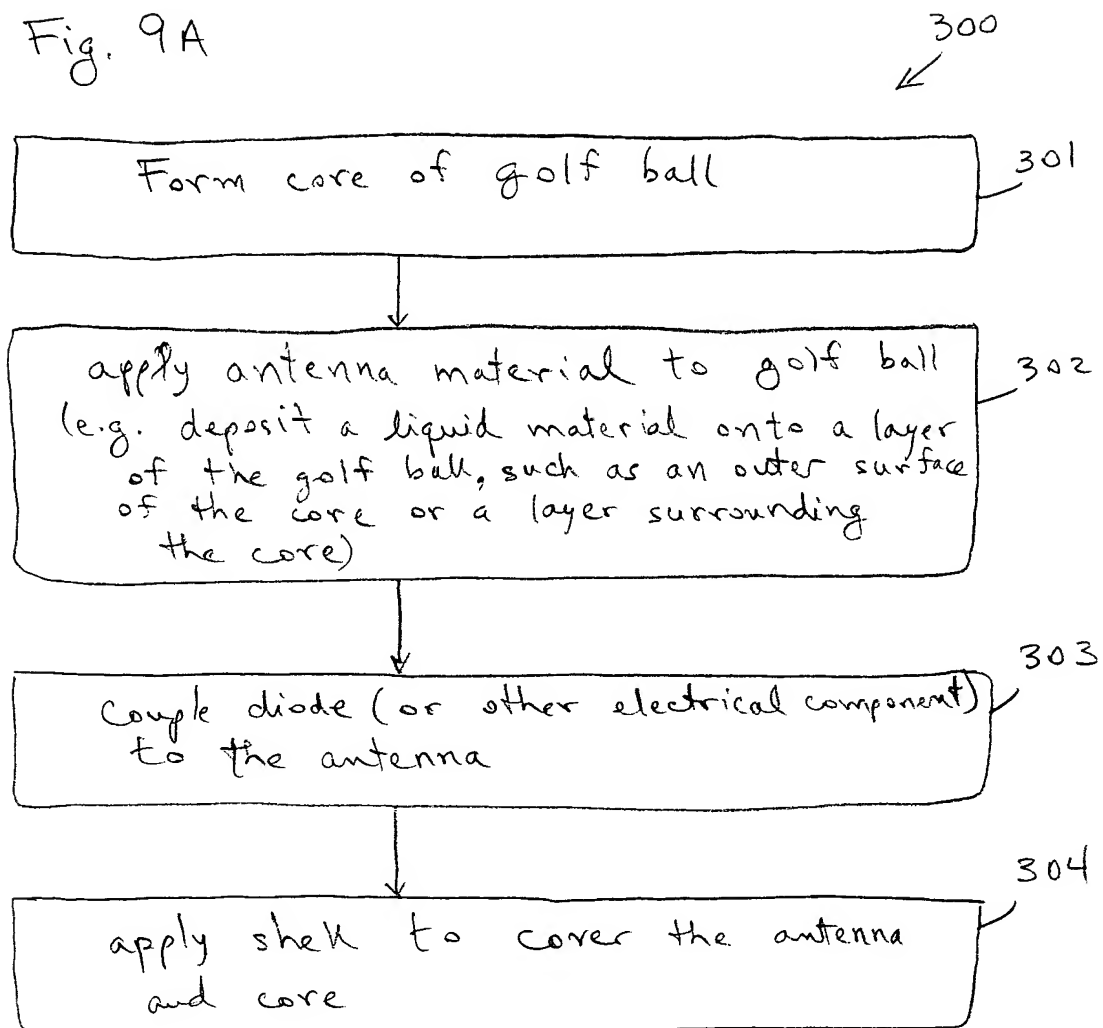 Fig. 9A
300
Form core of golf ball
301
apply antenna material to golf ball
(e.g. deposit a liquid material onto a layer
of the golf ball, such as an outer surface
of the core or a layer surrounding
the core)
302
couple diode (or other electrical component)
to the antenna
303
apply shell to cover the antenna
and core
304